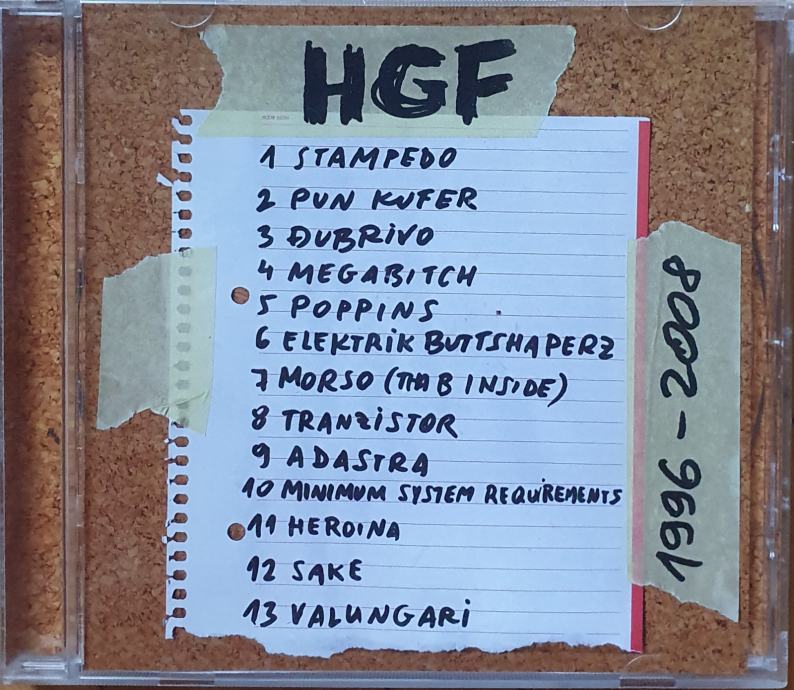 HGF
1 STAMPEDO
2 PUN KUFER
3 ĐUBRIVO
4 MEGABITCH
5 POPPINS
6 ELEKTRIK BUTTSHAPERZ
7 MORSO (THA B INSIDE)
8 TRANZISTOR
9 ADASTRA
10 MINIMUM SYSTEM REQUIREMENTS
11 HEROINA
12 SAKE
13 VALUNGARI
1996-2008